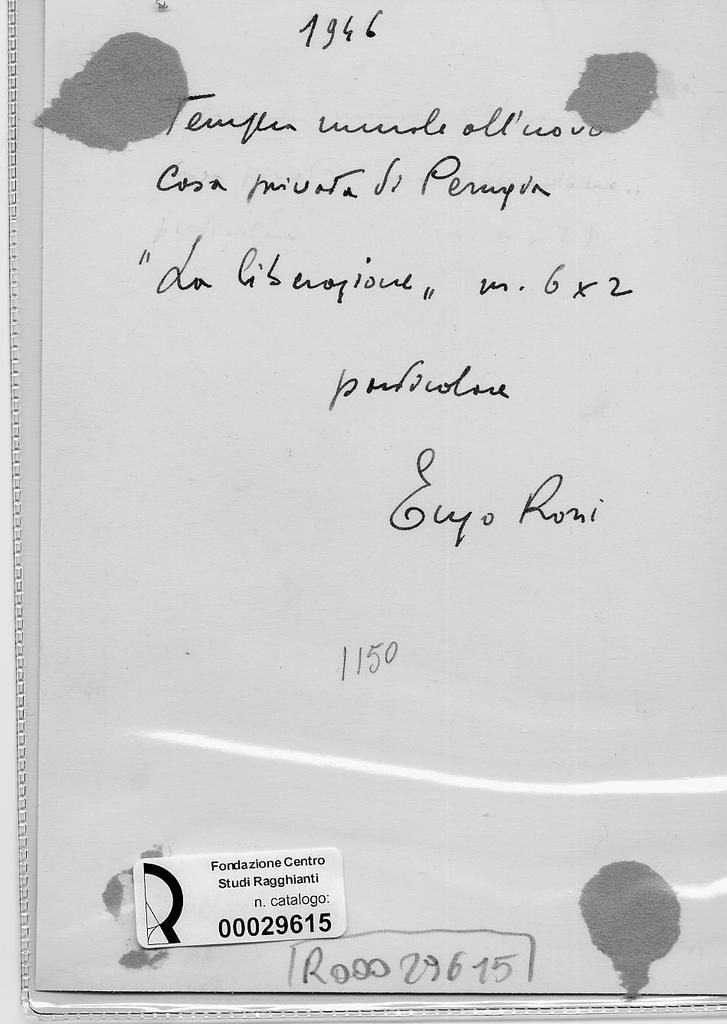 1946
Tempera murale all'uovo
Casa privata di Perugia
"La liberazione„ m. 6 x 2
particolare
Enzo Rossi
1150
Fondazione Centro
Studi Ragghianti
n. catalogo:
00029615
R00029615